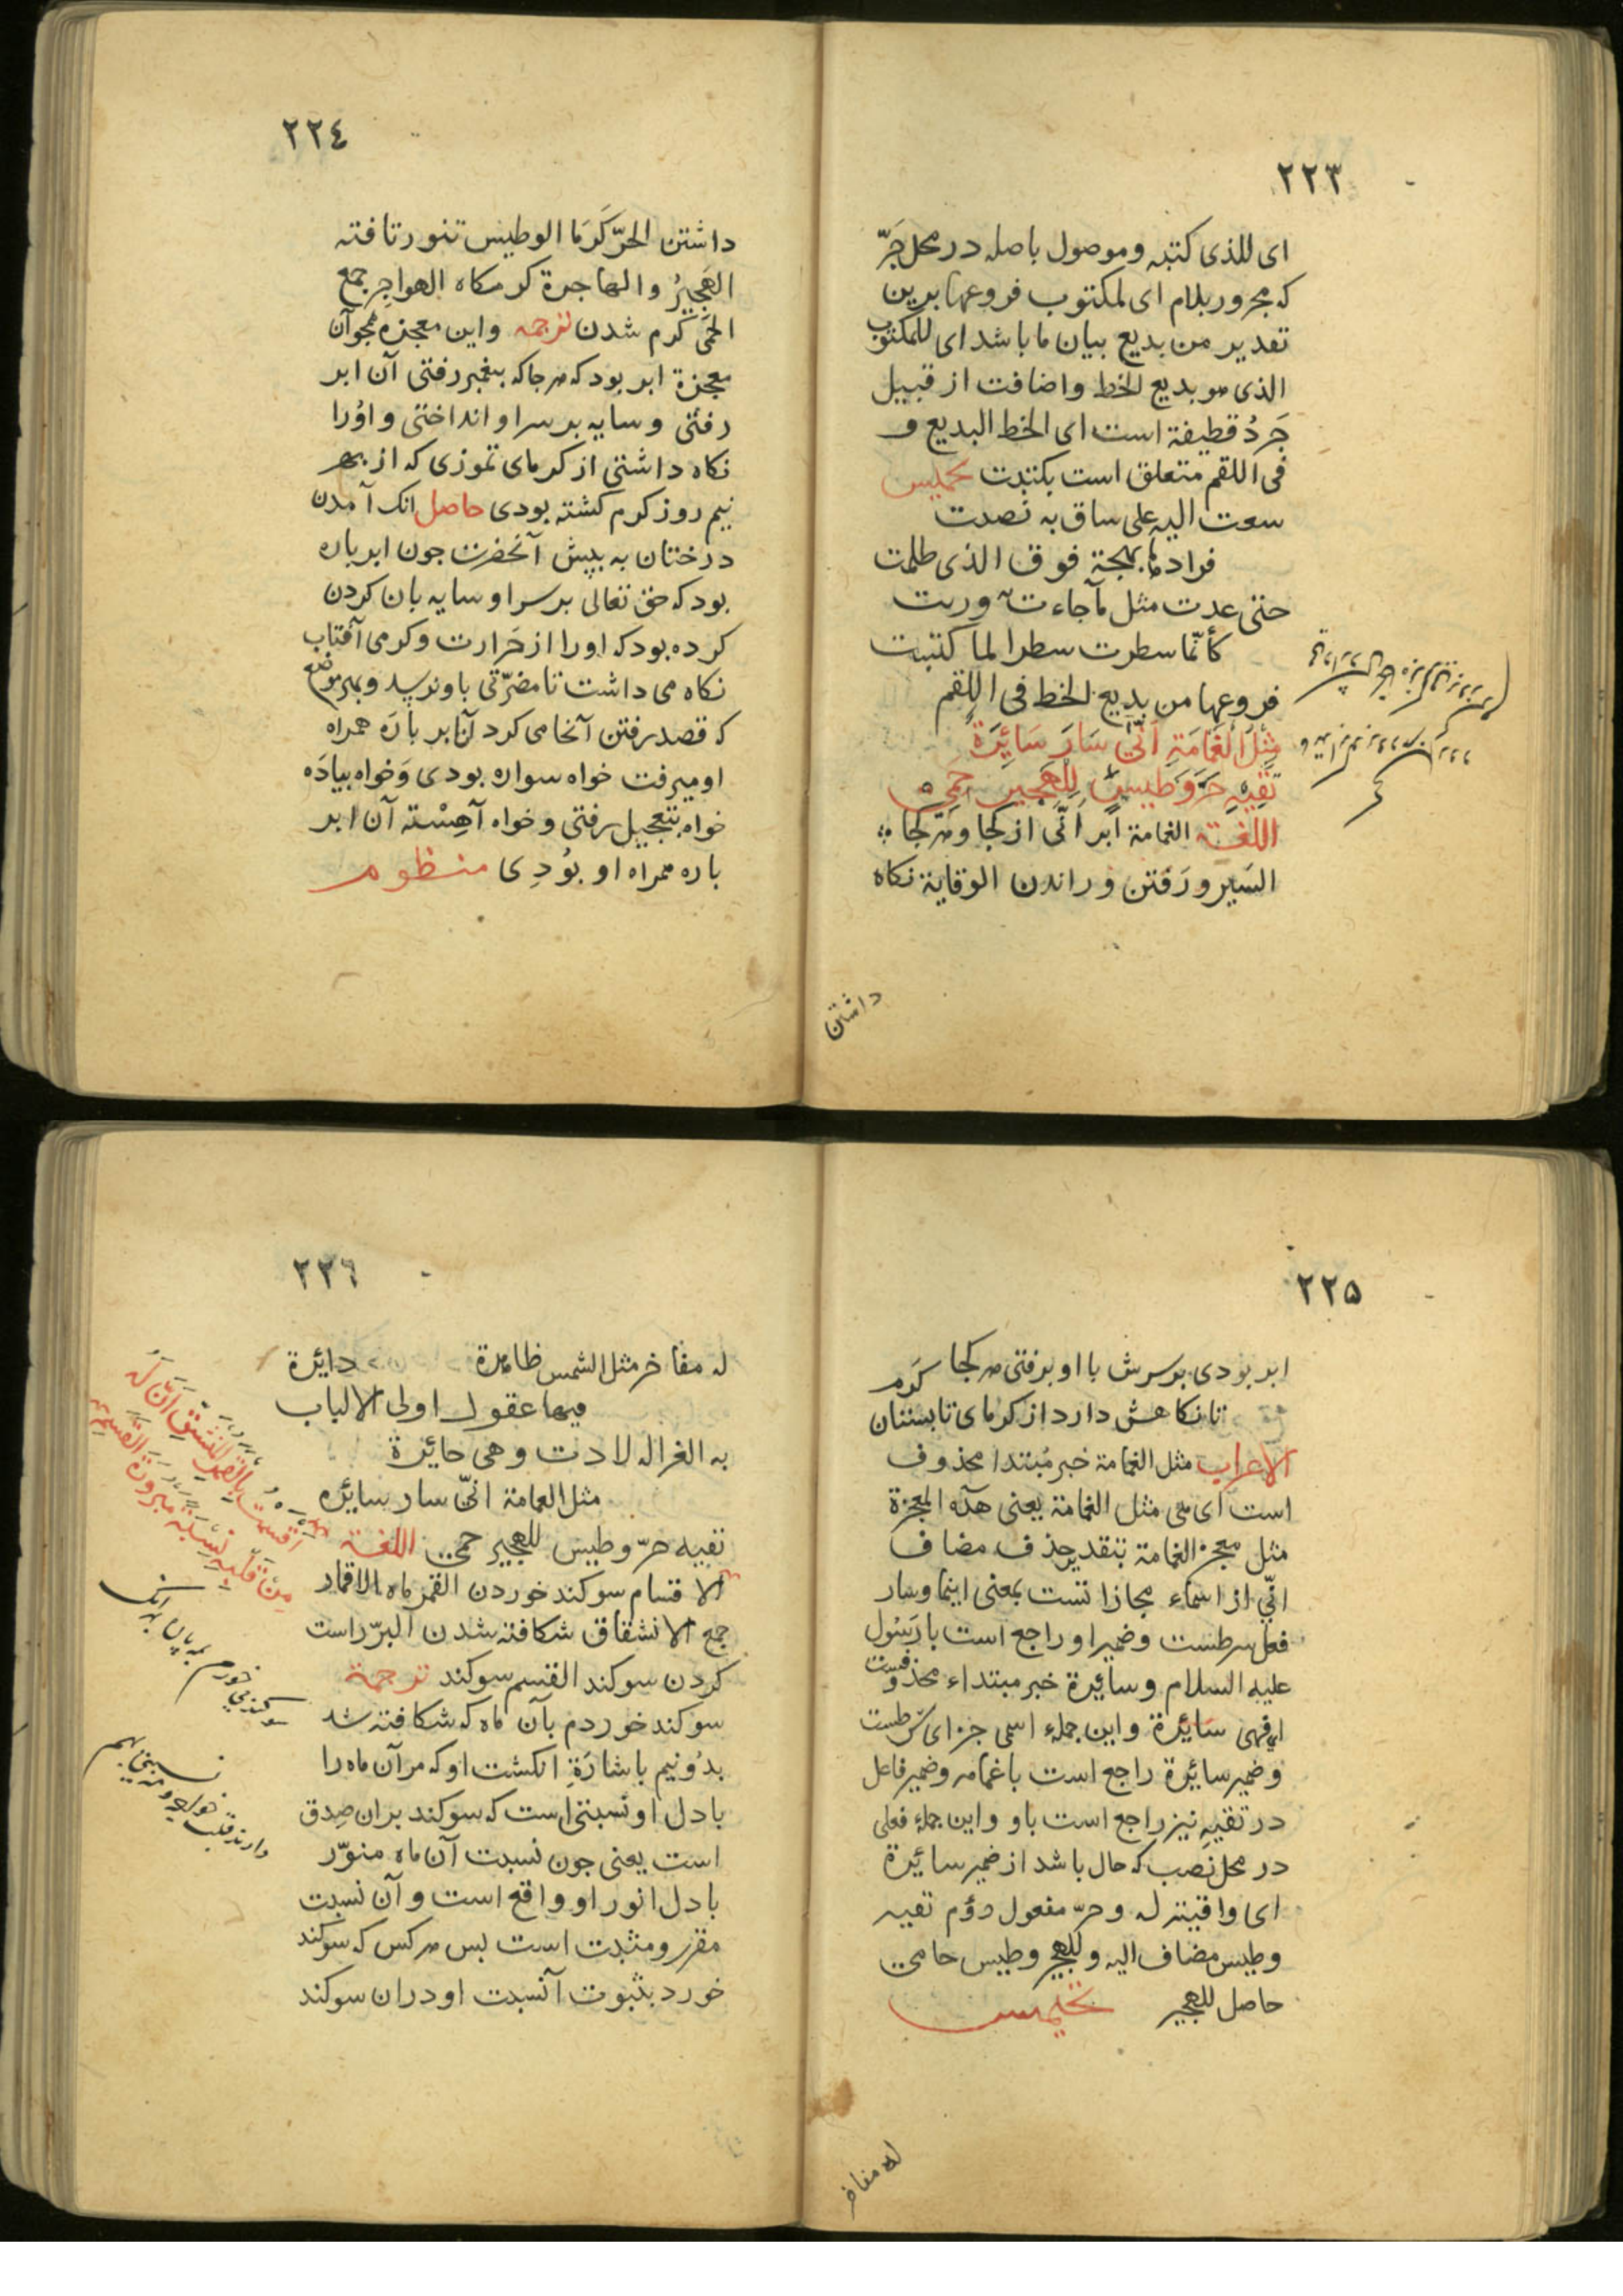 ٢٢٣
ای للذی کتبه وموصول باصله در محل جَرّ
که مجرور بلام ای لمکتوب فروعها برین
تقدیر من بدیع بیان ما باشد ای للمکتوب
الذی هو بدیع الخط واضافت از قبیل
جَردُ قطیفة است ای الخط البدیع و
فی اللقم متعلق است بکتبت تخمیس
سعت الیه علی ساق به نصدت
فرادها بهجة فوق الذی طلمت
حتی عدت مثل ما جاءت وربت
کأنّما سطرت سطرا لما کتبت
فروعها من بدیع الخط فی اللقم
مِثْلَ الْغَمَامَةِ اَنّٰی سَارَ سَائِرَةً
تَقِیْهِ حَرَّ وَطِیسٍ لِلْهَجِیرِ حَمِی
اللغة الغمامة ابر اَنّی از کجا و هر کجا
السَیر و رَفتن و راندن الوقایة نکاه
داشتن
٢٢٤
داشتن الحرّ کَرمَا الوطیس تنور تافته
الهَجِیرُ والهاجرة کرمکاه الهواجِر جمع
الحَمی کرم شدن ترجمه واین معجزه همجو آن
معجزة ابر بود که هر جا که پیغمبر رفتی آن ابر
رفتی و سایه بر سر او انداختی و اوُرا
نکاه داشتی از کرمای تموزی که از بهر
نیم روز کرم کشته بودی حاصل انک آمدن
درختان به پیش آنحضرت جون ابر باره
بود که حق تعالی بر سر او سایه بان کردن
کرده بود که او را از حَرارت و کرمی آفتاب
نکاه می داشت تا مضرّتی باو نرسد و بهر موضع
که قصد رفتن آنجا می کرد آن ابر بارَه همراه
او میرفت خواه سواره بودی وَخواه بیادَه
خواه بتعجیل رفتی و خواه آهِسْته آن ابر
باره همراه او بوُدِی منظوم
٢٢٥
ابر بودی بر سرش با او برفتی هر کجا
تا نکاهش دارد از کرمای تابستان کَرم
الاعراب مثل الغمامة خبر مُبتدا محذوف
است ای هی مثل الغمامة یعنی هذه المعجزة
مثل معجزة الغمامة بتقدیر حذف مضاف
انّی از اسماء مجازا تست بمعنی اینما وسار
فعل شرطست وضمیر او راجع است با رَسُول
علیه السلام وسائِرة خبر مبتداء محذوفست
ای فهی سَائِرة واین جملهٔ اسمی جزای شرطست
وضمیر سائِرة راجع است با غمامه وضمیر فاعل
در تقیهِ نیز راجع است باو واین جملهٔ فعلی
در محل نصب که حال باشد از ضمیر سائِرة
ای واقیة له وحرّ مفعول دوُم تقیه
وطیس مضاف الیه وللهجیر وطیس حامی
حاصل للهجیر تخمیس
له مفاخر
٢٢٦
له مفاخر مثل الشمس ظاهرة دایرة
فیها عقول اولی الالباب
به الغزاله لادت وهی حائرة
مثل الغمامة انّی سار سائره
تقیه حرّ وطیس للهجیر حمی اللغة
الاقسام سوکند خوردن القمر ماه الاقمار
جمع الانشقاق شکافته شدن البرّ راست
کردن سوکند القسم سوکند ترجمة
سوکند خوردم بآن ماه که شکافته شد
بدوُنیم باشارَةِ انکشت او که مر آن ماه را
با دل او نسبتی است که سوکند بران صِدق
است یعنی جون نسبت آن ماه منوّر
با دل انور او واقع است و آن نسبت
مقرر و مثبت است بس هر کس که سوکند
خورد بثبوت آنسبت او دران سوکند
اَقسمت بِالْقَمَرِ الْمُنْشَقِّ اَنَّ لَهُ
مِنْ قَلْبِهِ نِسْبَةً مَبْرُورَةَ الْقَسَمِ